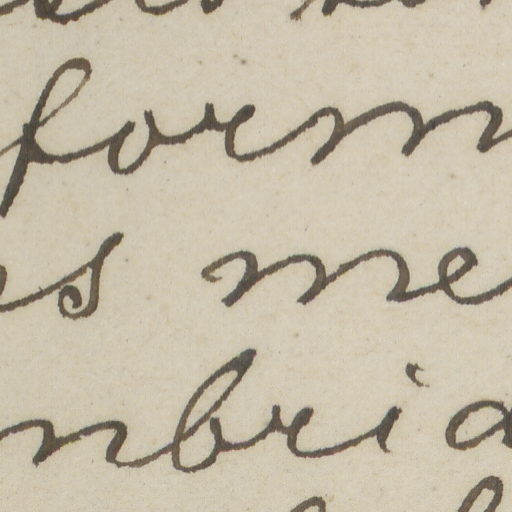 form
s me
nbria